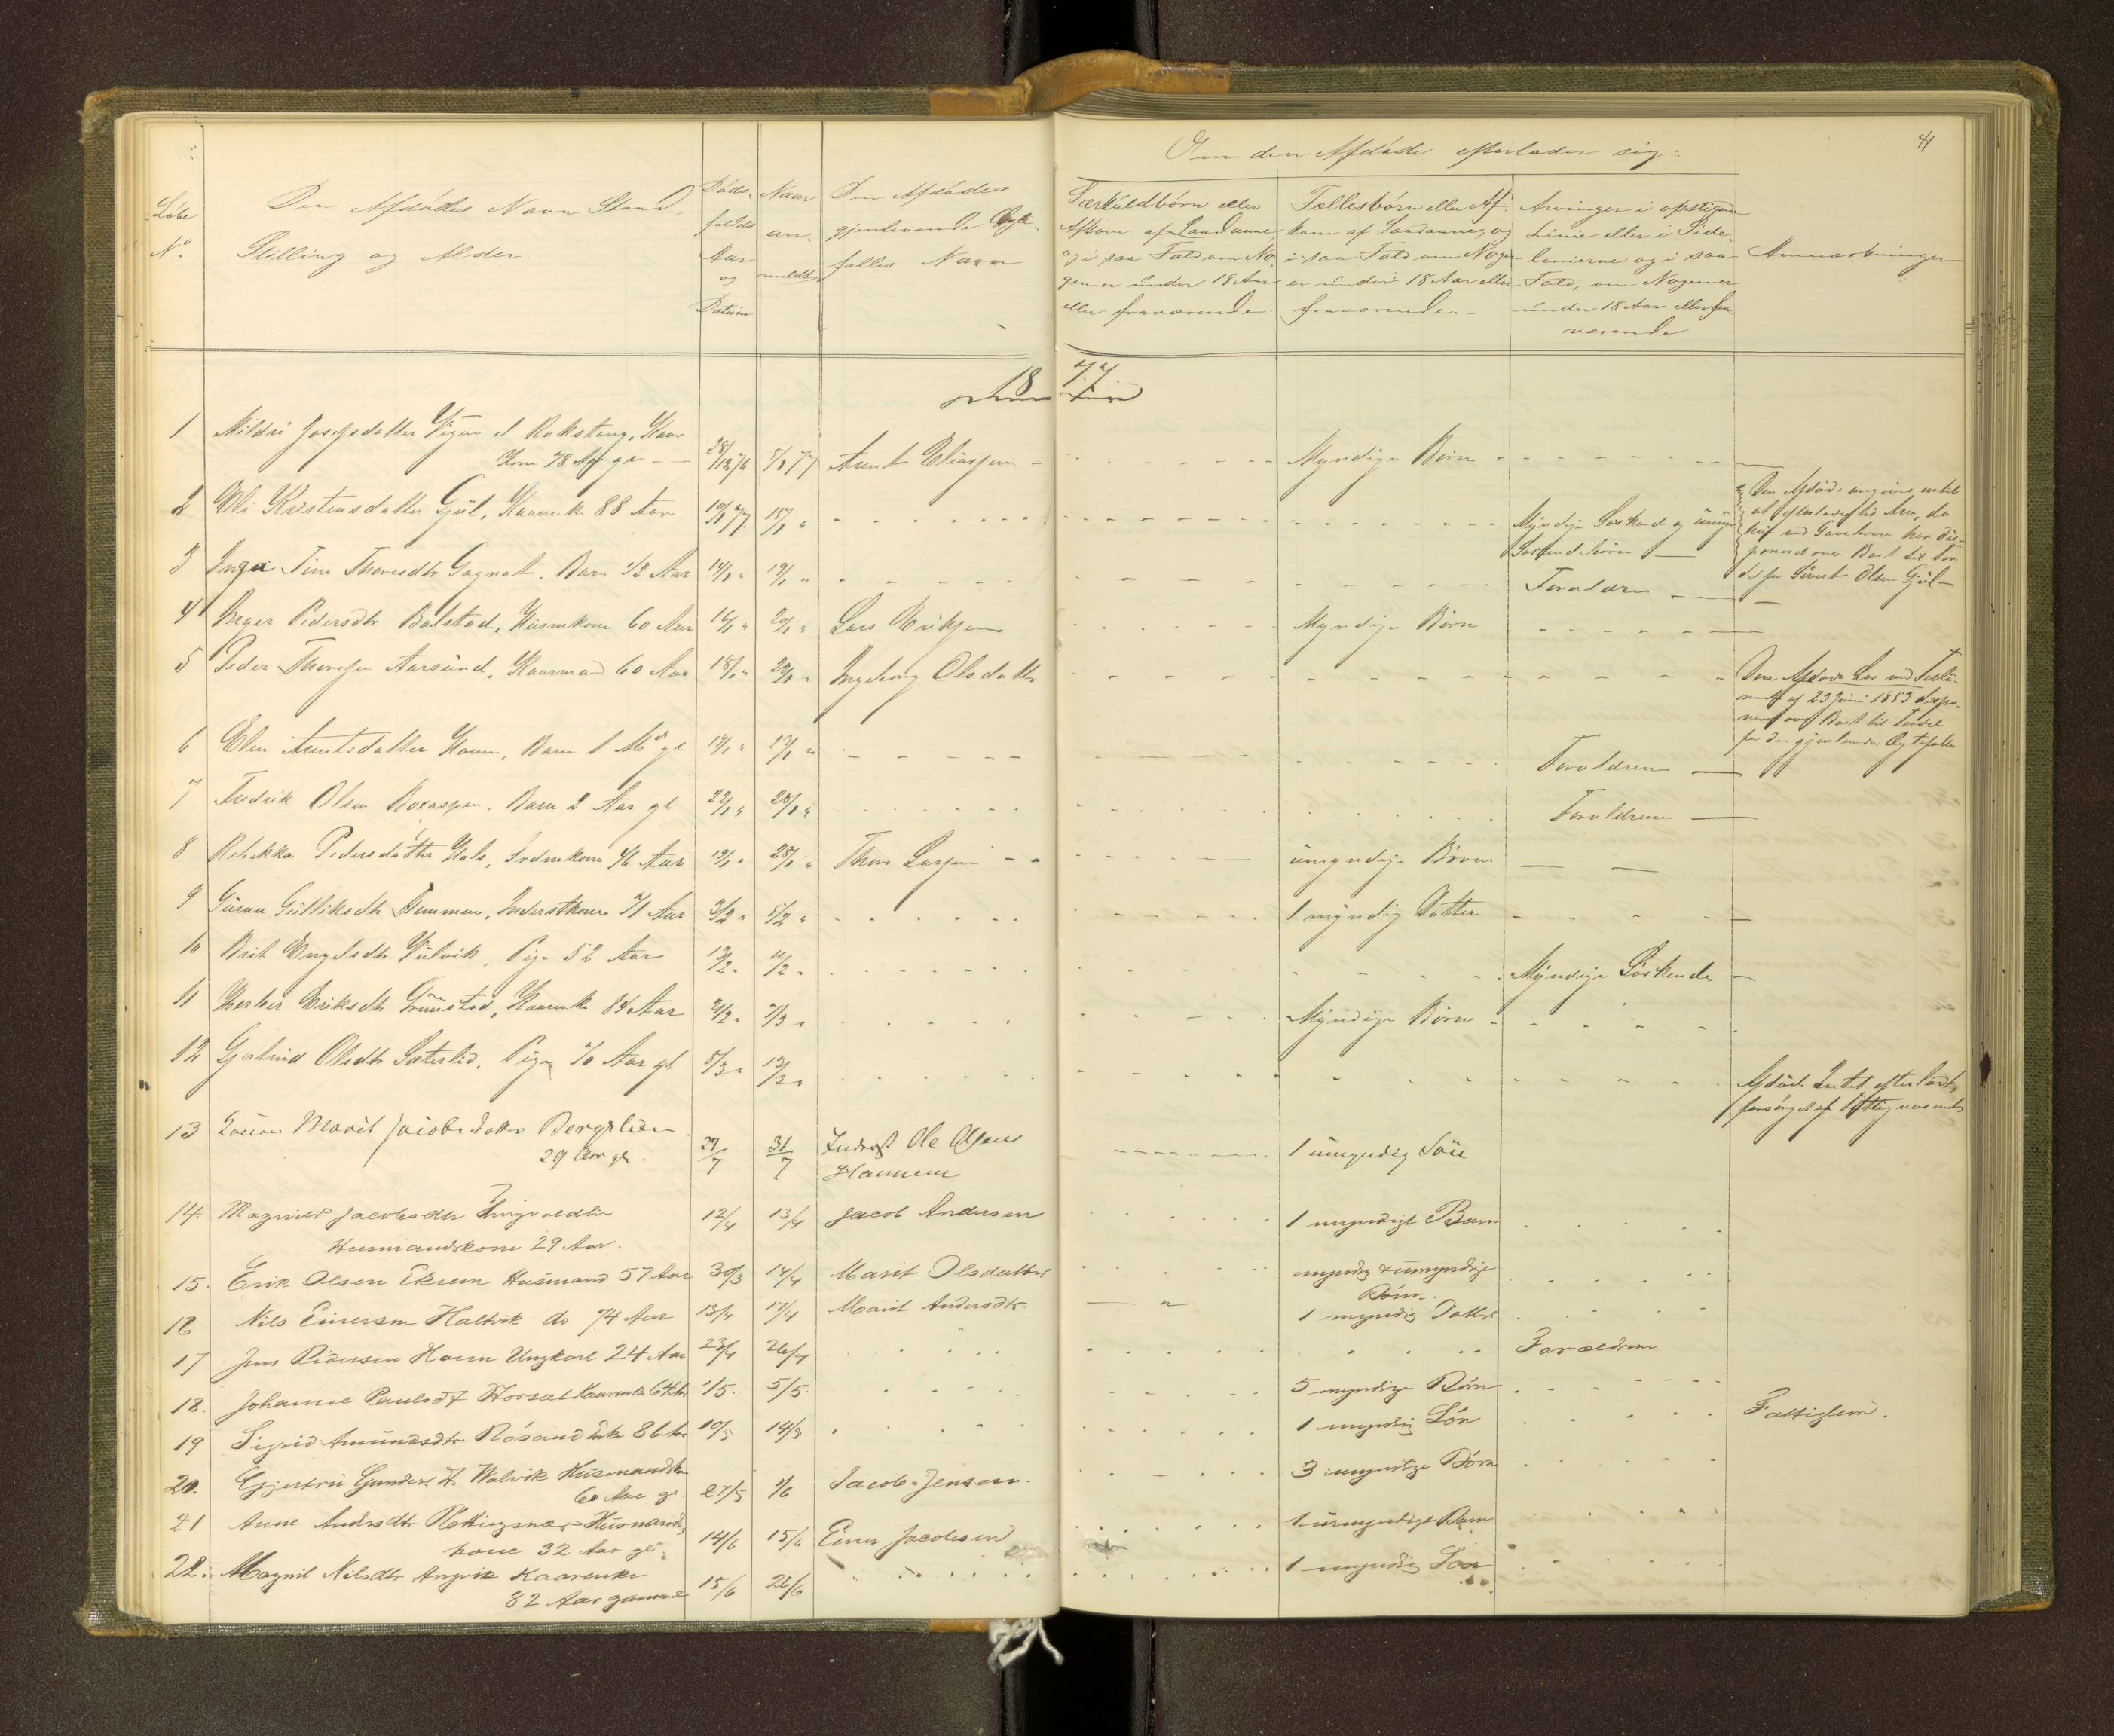 41
Om den Afdøde efterlader sig:
Løbe No.
Den Afdødes Navn Stand, Stilling og Alder
Døds-faldets Aar og Datum
Naar an-meldt
Den Afdødes gjenlevende Ægte-fælles Navn
Særkuldbørn eller Afkom af Saadanne og i saa Fald om No-gen er under 18 Aar eller fraværende
Fællesbørn eller Af-kom af Saadanne, og i saa Fald om Nogen er under 18 Aar eller fraværende.
Arvinger i opstigende Linie eller i Side-linierne og i saa Fald, om Nogen er under 18 Aar eller fra-værende
Anmærkninger
1877
1 Mildri Josefsdatter Vigen Kaar
Kone 78 Aar gl 28/12 76 5/1 77 Amut Eliassen Myndige Børn
2 Eli Kristensdatter Gjül, Kaarenke 88 Aar 10/1 77. 15/1 " Myndige Søskende og
Søskendebørn
Den Afdøde angives intet
at efterlade sig til Arv, da
hun ved Gavebrev har dis-
poneret over Boet til For
del for Olsen Gjül
3 Inga Tine Thoresdtr Gagnat, Barn 1/2 Aar 14/1 " 19/1 " Forældre
4 Inger Pedersdtr Bolstad, Husmkone 60 Aar 16/1 " 20/1 " Lars Eriksen Myndige Børn
5 Peder Thoresen Aarsund, Kaarmand 60 Aar 18/1 " 22/1 " Ingeborg Olsdatter
Den Afdøde har ved Testa-
ment af 23 Juni 1853 dispo-
neret over Boet til Fordel
for den gjenlevende Ægtefælle
6 Elen Amutsdatter Horem, Barn 1 Md gl 14/1 " 23/1 " Forældrene
7 Fredrik Olsen Boraspen, Barn 2 Aar gl 22/1 " 25/1 " Forældrene
8 Rebekka Pedersdatter Hals, kone 46 Aar 19/1 " 28/1 " Thore Larsen umyndige Børn
9 Gulliksdtr Hemman, Inderstkone 71 Aar 3/2 " 5/2 " 1 myndig Datter
10 Brit Engelsdtr Vulvik, Pige 52 Aar 13/2 " /2 " Myndige Søskende
11 Eriksdtr Grimstad, Kaarenke 84 Aar 21/2 " 7/3 " Myndige Børn
12 Gjertrud Olsdtr Sæterlid, Pige 70 Aar gl 5/3 " 12/3 "
Afdøde Intet efterladt,
forsørget af Fattigvæsenet
13 Marit Jacobsdatter Bergslien
29 Aar gl. 29/7 31/7 Inderst Ole Olsen
Hannem 1 umyndig Søn
14. Magnild Jacobsdtr Tingvoldlien
Husmandskone 29 Aar. 12/4 13/4 Jacob Andersen 1 umyndigt Barn
15. Erik Olsen Eksem Husmand 57 Aar 30/3 14/4 Marit Olsdatter myndig & umyndige
Børn.
16 Nils Einersen Haltvik do 74 Aar 13/4 17/4 Marit Andersdtr. 1 myndig Datter
17 Jens Pedersen Horem Ungkarl 24 Aar 23/4 26/4 Forældrene
18. Johanne Paulsdtr Kaarenke 64 Aar 1/5. 5/5. 5 myndige Børn
19 Sigrid Amundsdtr Røsand Enke 86 Aar 10/5 14/5 1 myndig Søn Fattiglem.
20. Gjertru Gundersdtr Walvik Husmandsk
60 Aar gl. 27/5 1/6 Jacob Jensen. 3 myndige Børn
21 Anne Andersdtr Røttingsnæs Husmands
kone 32 Aar gl. 14/6 15/6 Einer Jacobsen 1 umyndigt Barn
22. Magnil Nilsdtr Angvik Kaarenke
82 Aar gammel 15/6 26/6 1 myndig Søn